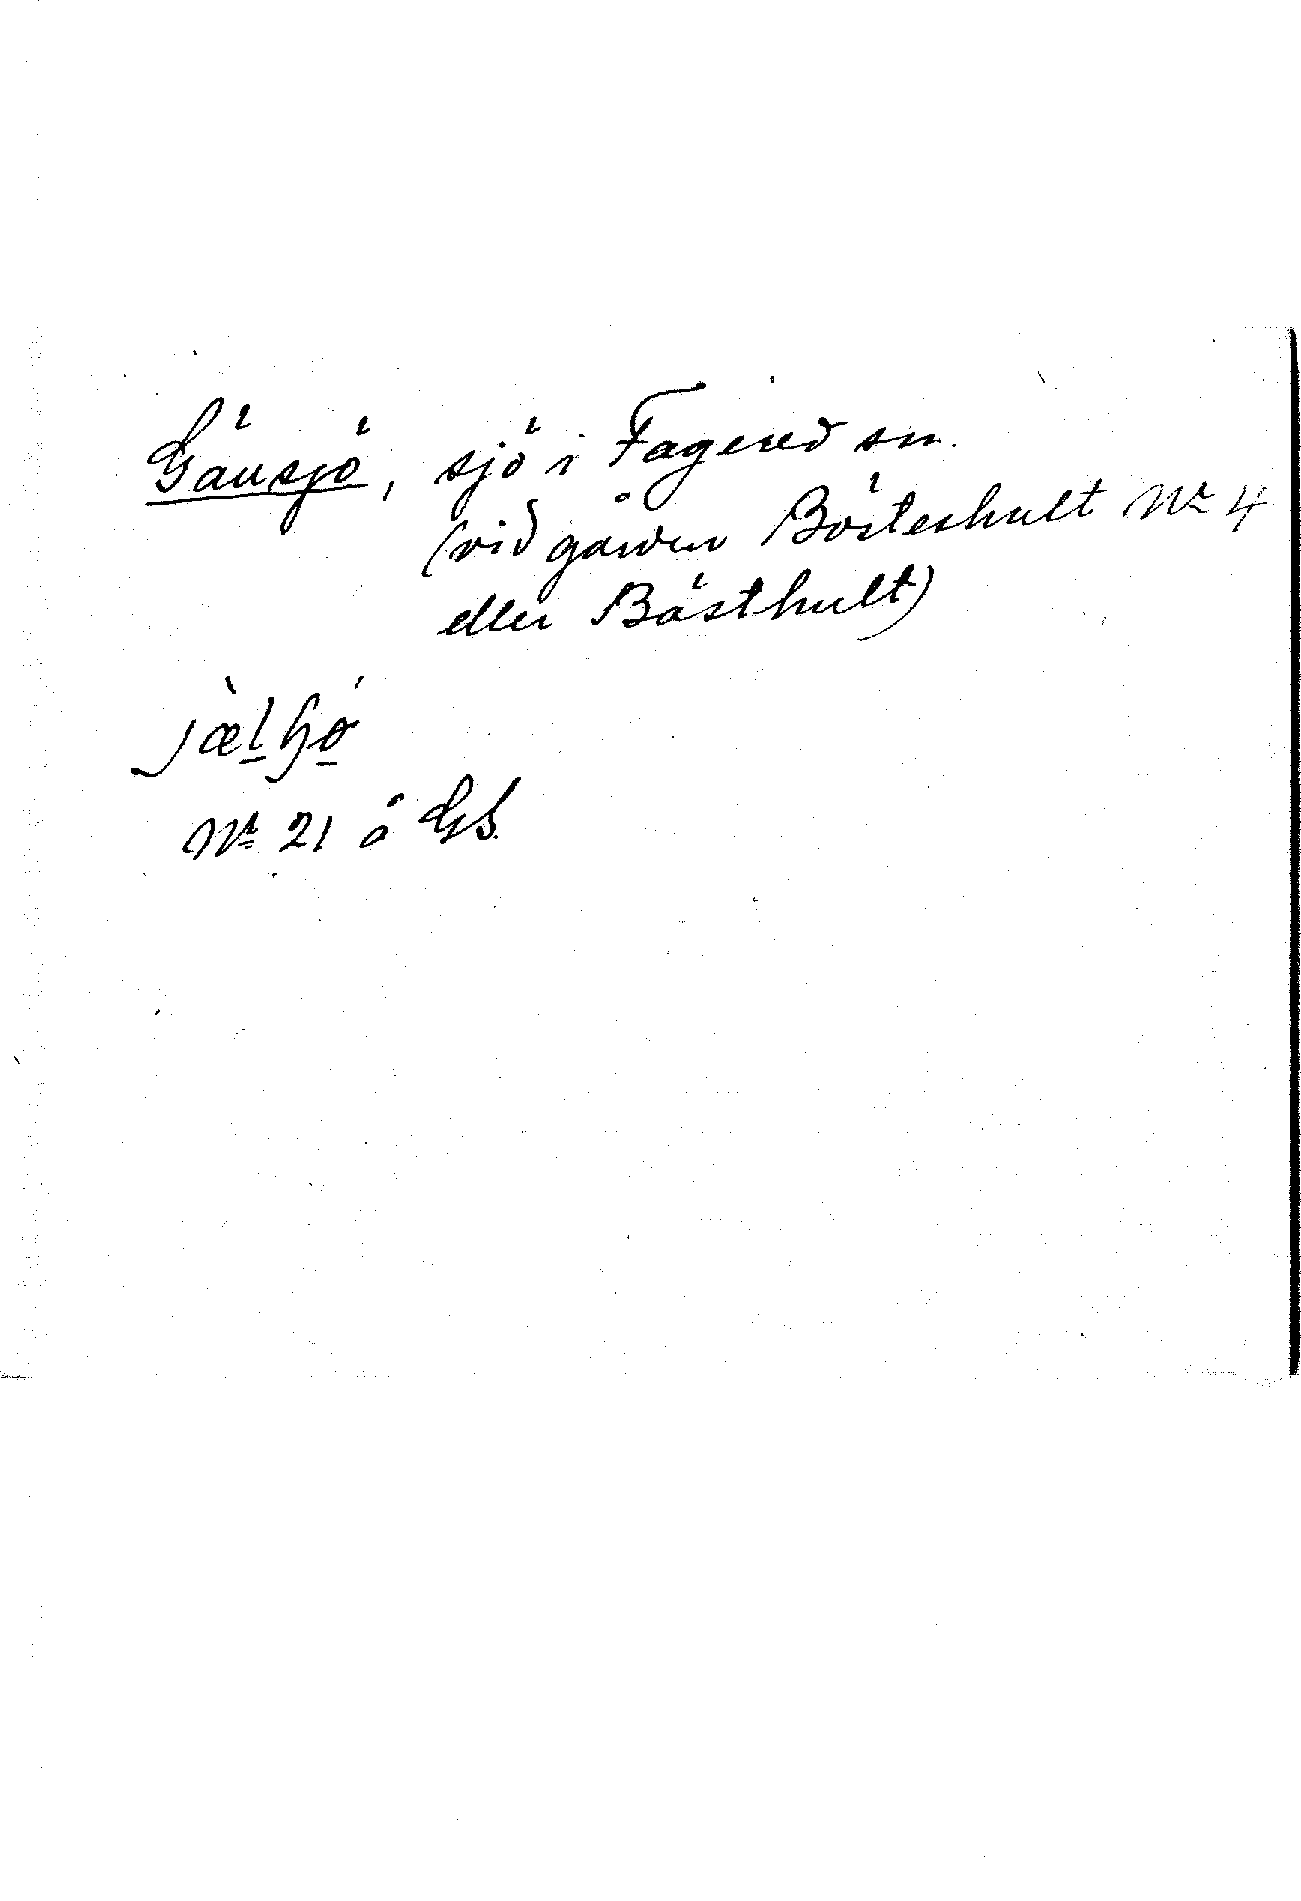 Gäusjö, sjö i Fagered sn.
(vid gården Bösteshult No 4
eller Bösthult)
No 21 å GS.